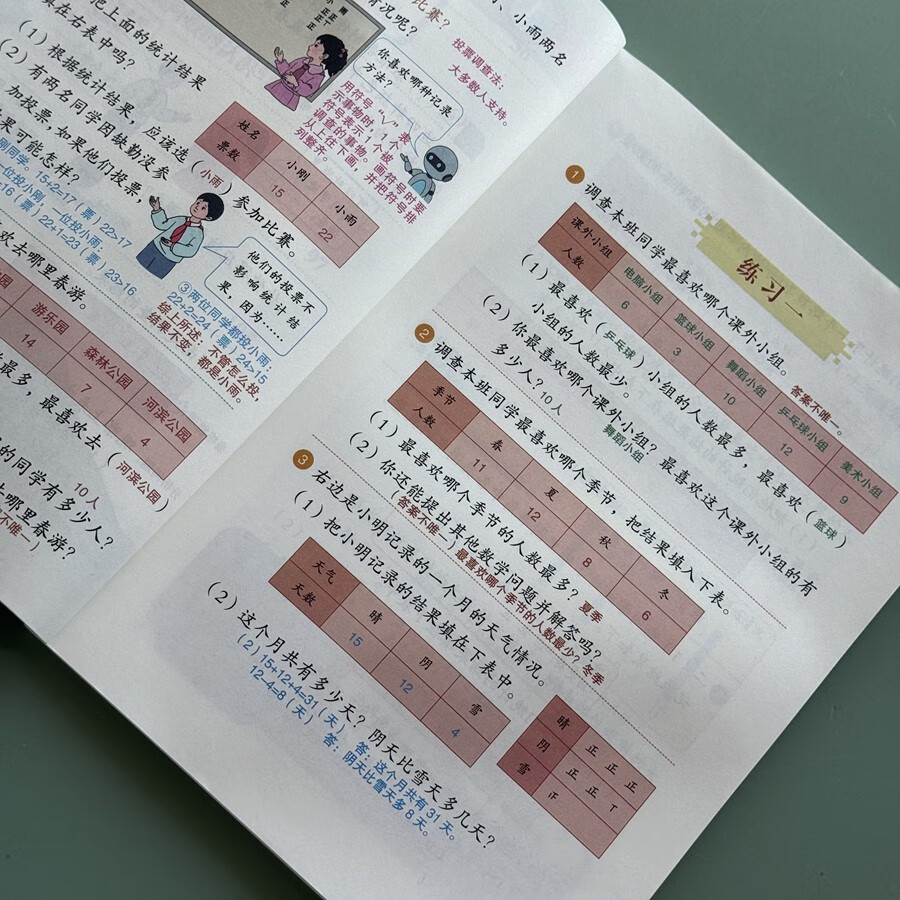 、小雨两名
比赛?
情况呢?
把上面的统计结果
填在右表中吗?
你喜欢哪种记录
方法?
投票调查法:
大多数人支持。
用符号“√”表
示事物时,1个
符号表示1个被
调查的事物。画符号时要
从上往下画,并把符号排
列整齐。
姓名 小刚 小雨
票数 15 22
(1)根据统计结果,应该选(小雨)参加比赛。
(2)有两名同学因缺勤没参
加投票,如果他们投票,
果可能怎样?
刚同学。15+2=17(票)22>17
位投小刚,一位投小雨:
=16(票)22+1=23(票)23>16
他们的投票不
影响统计结
果,因为……
③两位同学都投小雨:
22+2=24(票)24>15
综上所述,不管怎么投,
结果不变,都是小雨。
欢去哪里春游。
游乐园 森林公园 河滨公园
14 7 4
最多,最喜欢去(河滨公园)
的同学有多少人?
10人
哪里春游?
不唯一)
练习一
1 调查本班同学最喜欢哪个课外小组。
答案不唯一。
课外小组 电脑小组 篮球小组 舞蹈小组 乒乓球小组 美术小组
人数 6 3 10 12 9
(1)最喜欢(乒乓球)小组的人数最多,最喜欢(篮球)
小组的人数最少。
(2)你最喜欢哪个课外小组?最喜欢这个课外小组的有
多少人?10人
舞蹈小组
2 调查本班同学最喜欢哪个季节,把结果填入下表。
季节 春 夏 秋 冬
人数 11 12 8 6
(1)最喜欢哪个季节的人数最多?夏季
(2)你还能提出其他数学问题并解答吗?
(答案不唯一)最喜欢哪个季节的人数最少?冬季
3 右边是小明记录的一个月的天气情况。
(1)把小明记录的结果填在下表中。
天气 晴 阴 雪
天数 15 12 4
晴 正 正 正
阴 正 正 丅
雪 𠄟
(2)这个月共有多少天?阴天比雪天多几天?
(2)15+12+4=31(天) 答:这个月共有31天。
12-4=8(天) 答:阴天比雪天多8天。